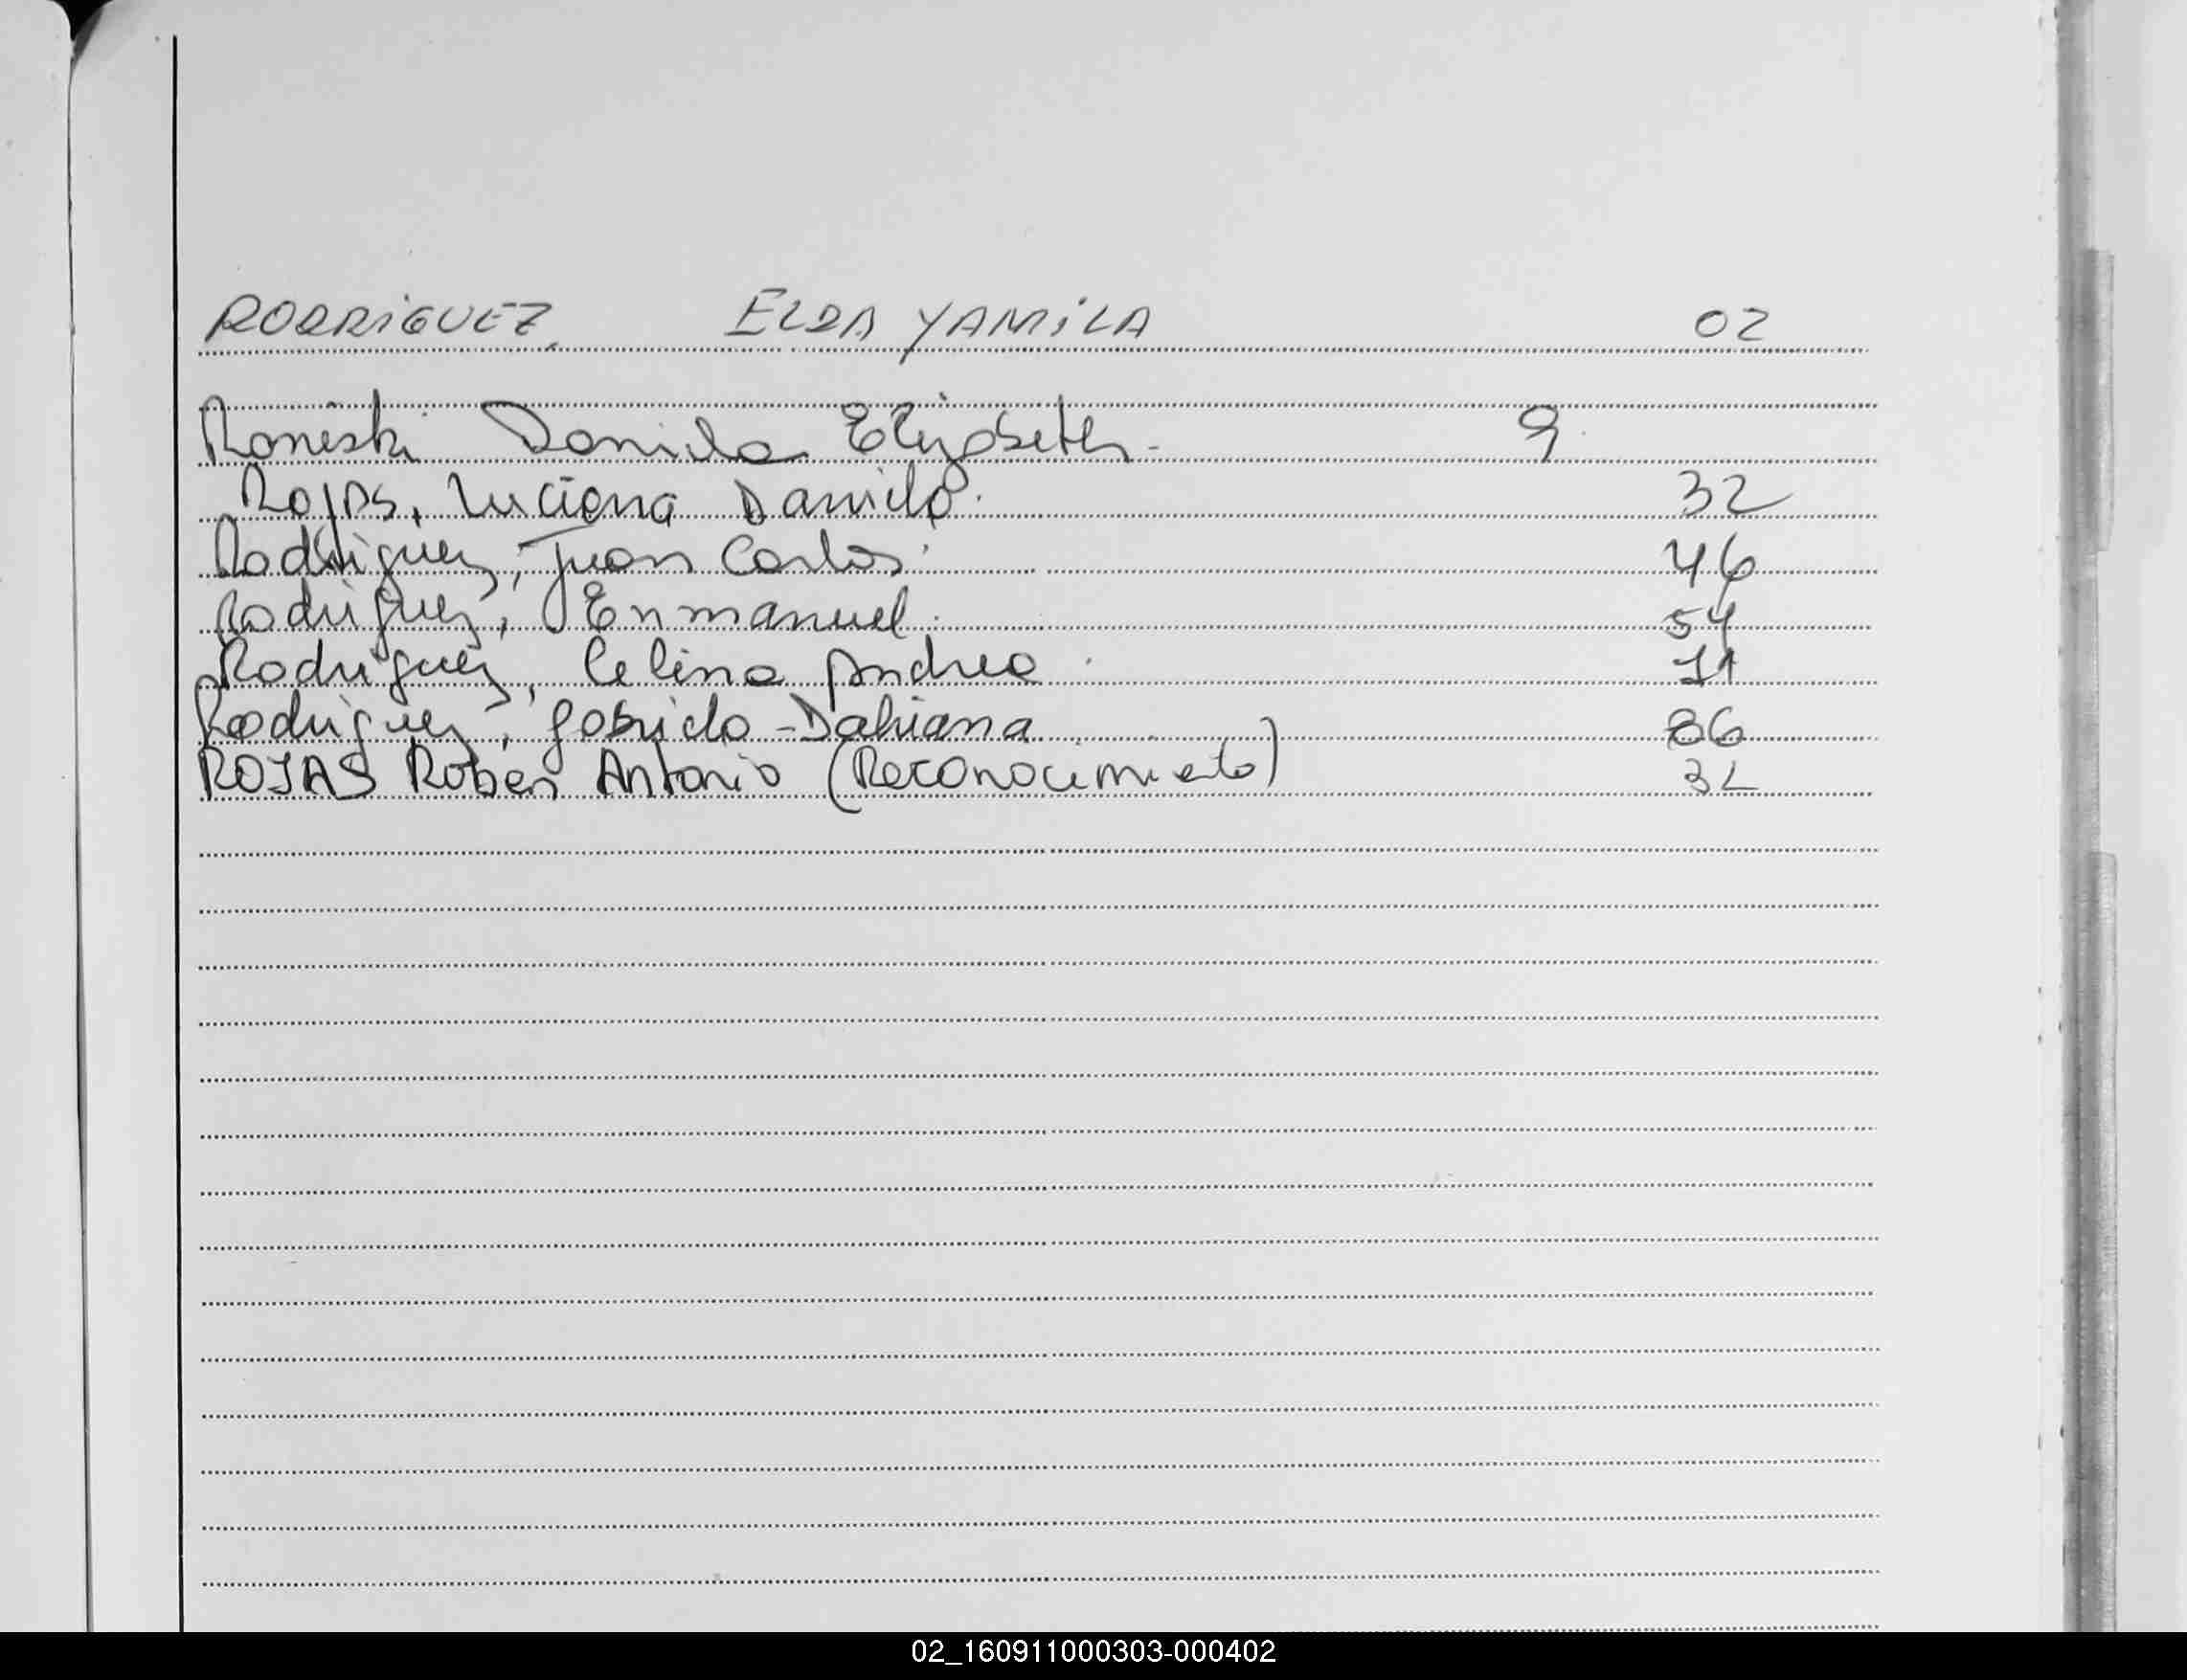 RODRiGUEZ, ELDA YAMiLA 02
Roneski Daniela Elizabeth - 9
Rojas, Luciana Daniela. 32
Rodriguez, Juan Carlos. 46
Rodriguez, Enmanuel. 54
Rodriguez, Celina Andrea. 71
Rodriguez, Gabriela - Dahiana 86
ROJAS Ruben Antonio (Reconocimiento) 32
02_160911000303-000402